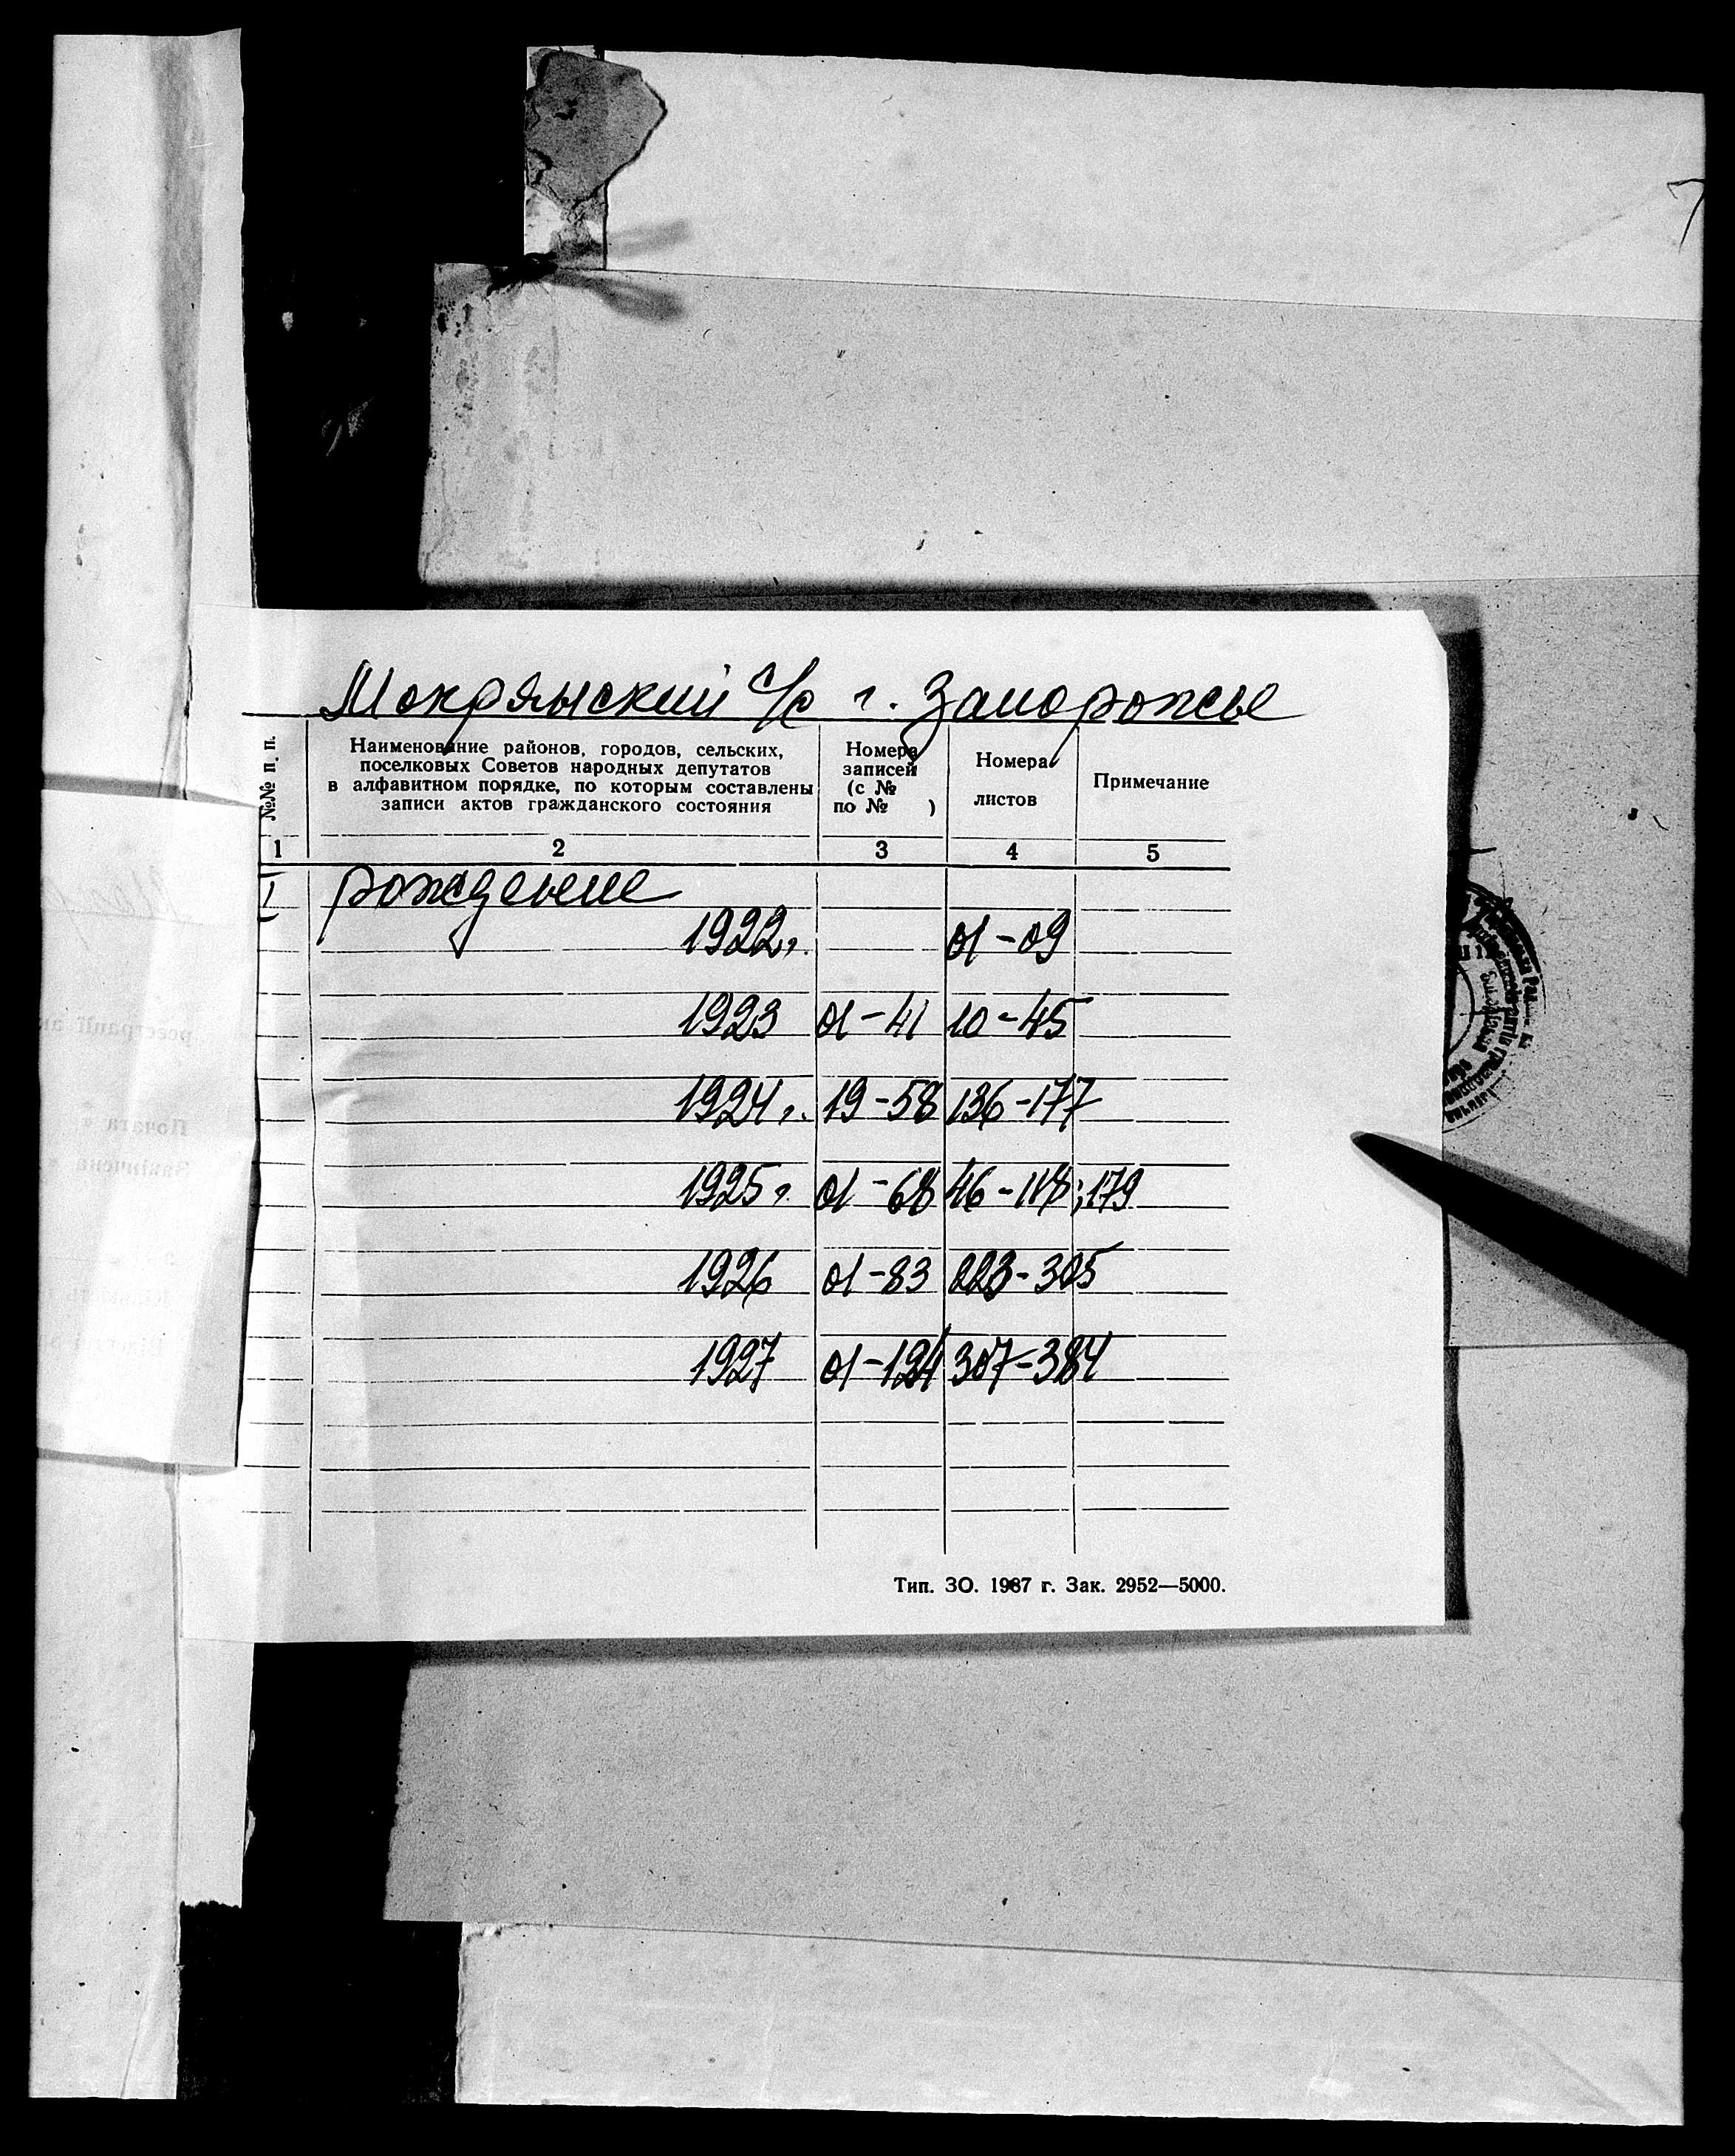 Мокрянский с/с г. Запорожье
№№ п. п.
Наименование районов, городов, сельских,
поселковых Советов народных депутатов
в алфавитном порядке, по которым составлены
записи актов гражданского состояния
Номера
записей
(с №
по № )
Номера
листов
Примечание
1 2 3 4 5
1 рождение
1922г. 01-09
1923 01-41 10-45
1924г. 19-58 136-177
1925г. 01-68 46-118; 179
1926 01-83 223-305
1927 01-124 307-384
Тип. ЗО. 1987 г. Зак. 2952—5000.